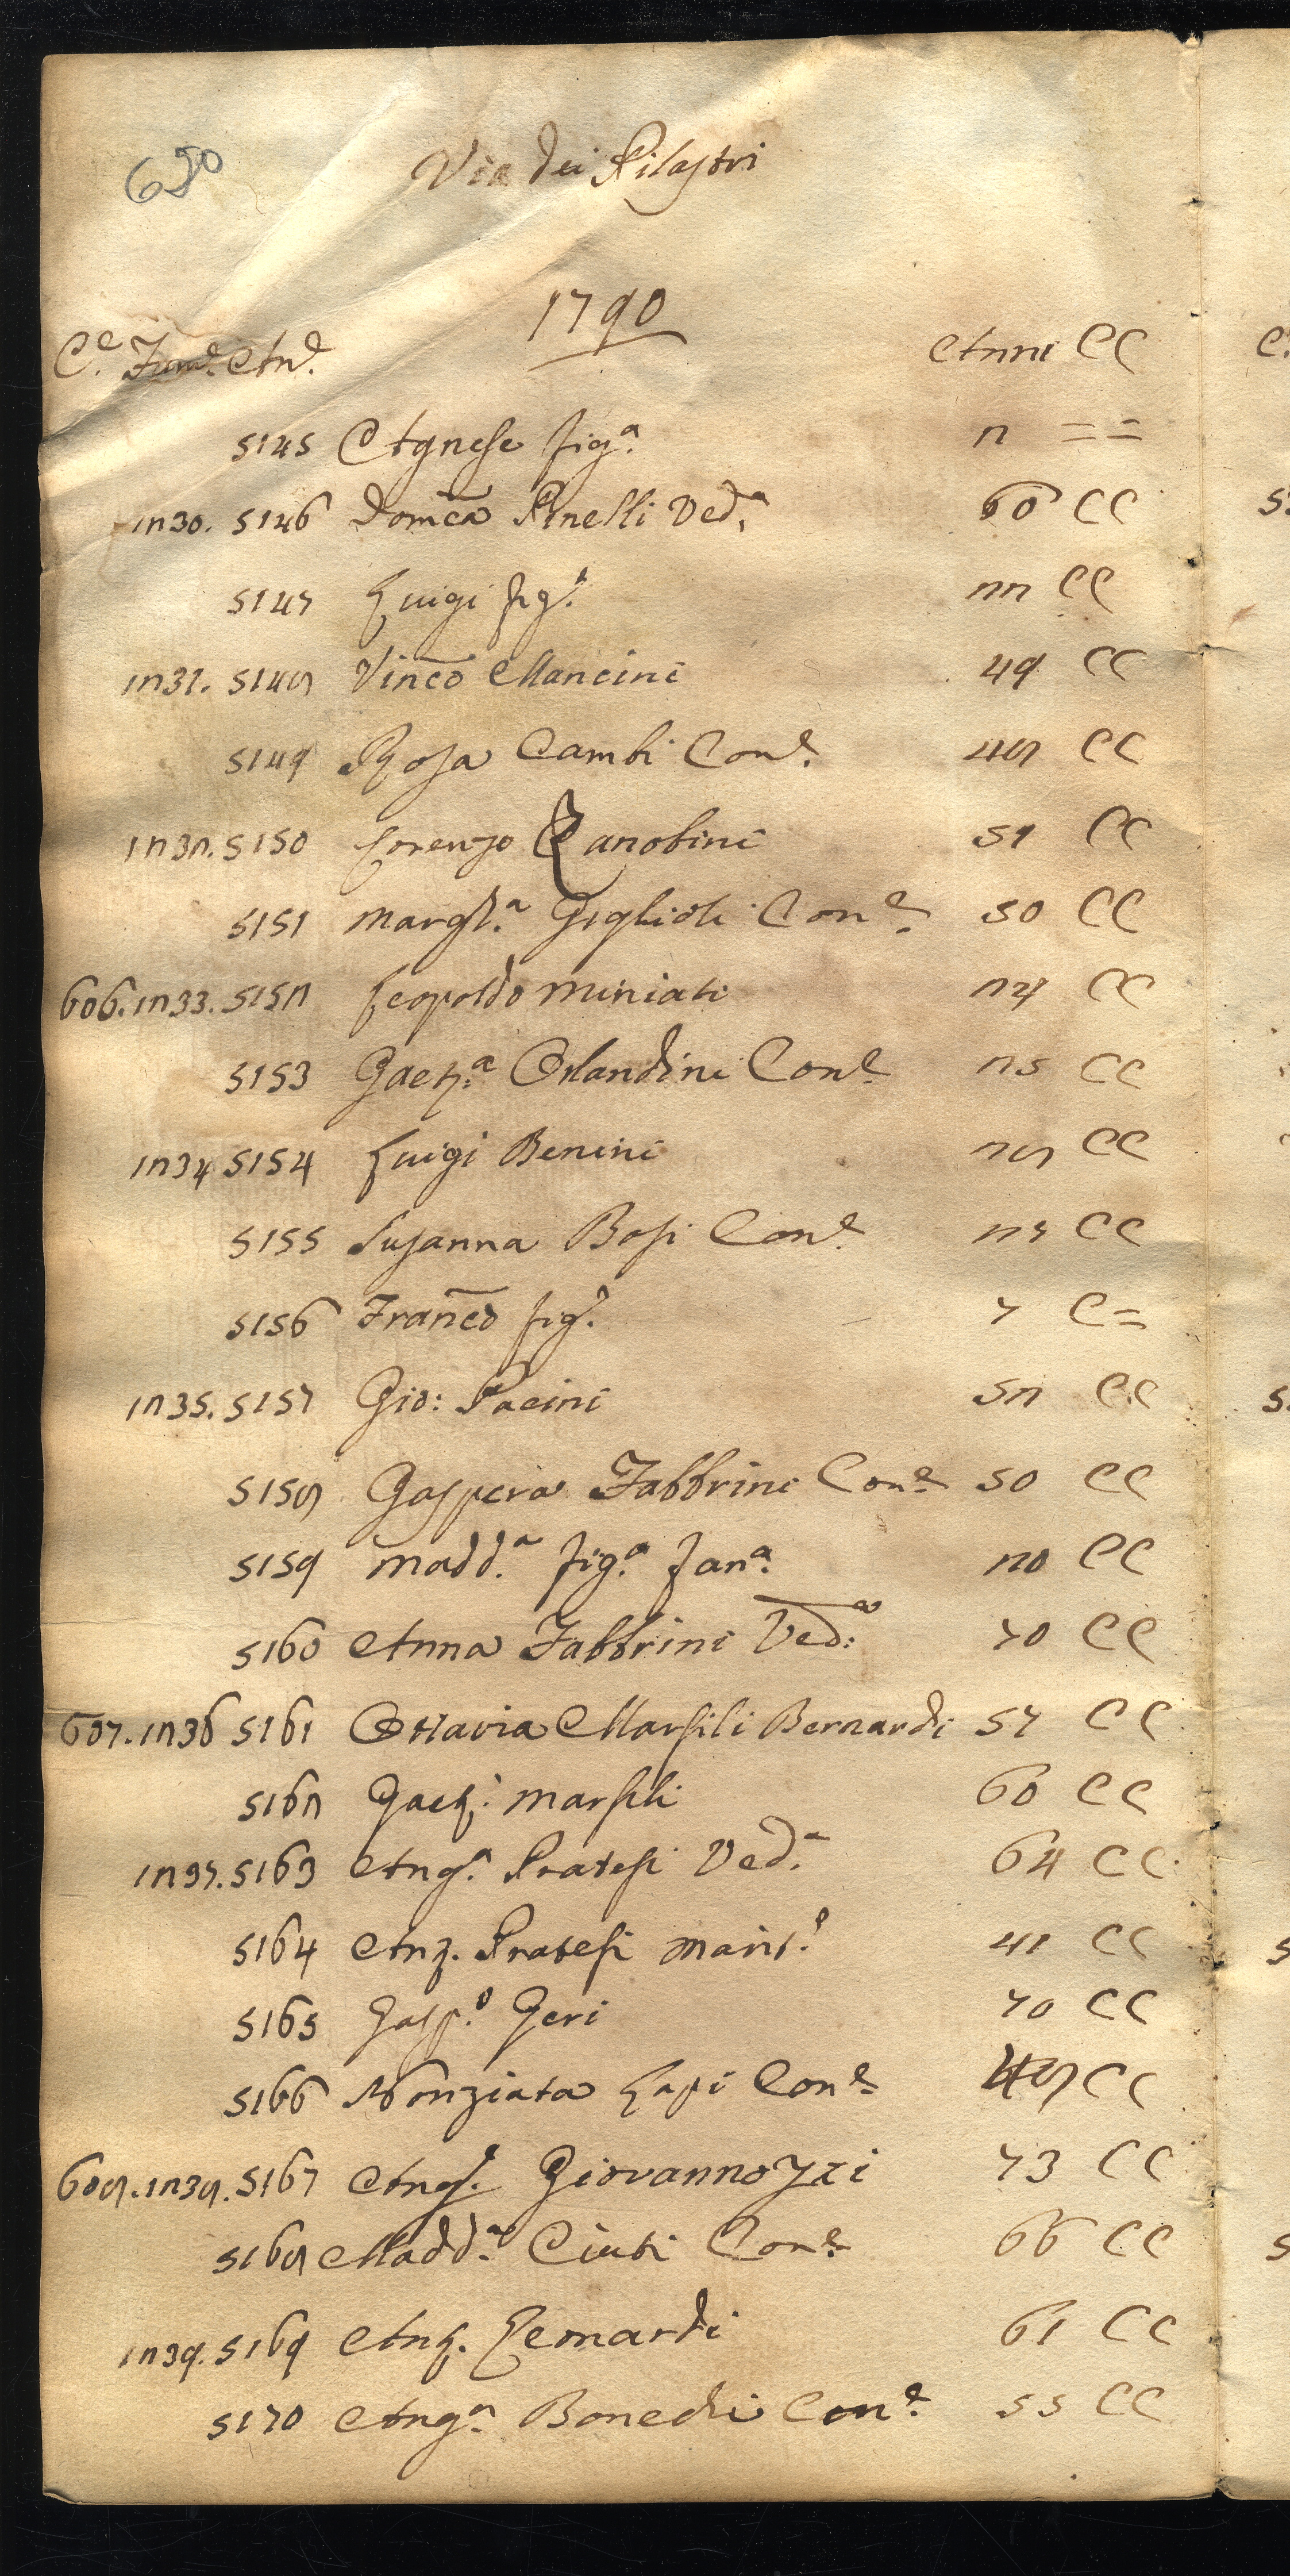 650
Via dei Pilastri
1790
C.e Fam.e An.e Anni CC
5145 Agnese fig.a 2 ==
1230. 5146 Dom̄ca Pinelli Ved.a 60 CC
5147 Luigi fig.o 22 CC
1231. 5148 Vinc̄o Mancini 49 CC
5149 Rosa Cambi Con.e 48 CC
1232. 5150 Lorenzo Zanobini 51 CC
5151 Margh.a Giglioli Con.e 50 CC
606. 1233. 5152 Leopoldo Miniati 24 CC
5153 Gaet.a Orlandini Con.e 25 CC
1234 5154 Luigi Benini 28 CC
5155 Susanna Bosi Con.e 27 CC
5156 Franc̄o fig.o 7 C=
1235. 5157 Gio: Pacini 52 CC
5158 Gaspera Fabbrini Con.e 50 CC
5159 Madd.a fig.a fan.a 20 CC
5160 Anna Fabbrini Ved:a 70 CC
607. 1236 5161 Ottavia Marsili Bernardi 57 CC
5162 Gaet.o Marsili 60 CC
1237. 5163 Ang.a Pratesi Ved.a 64 CC
5164 Ant. Pratesi Marit.o 41 CC
5165 Gasp.o Geri 70 CC
5166 Nonziata Lapi Con.e 48 CC
608. 1238. 5167 Ang.o Giovannozzi 73 CC
5168 Madd.a Ciuti Con.e 66 CC
1239. 5169 Ant. Leonardi 61 CC
5170 Ang.a Bonechi Con.e 55 CC